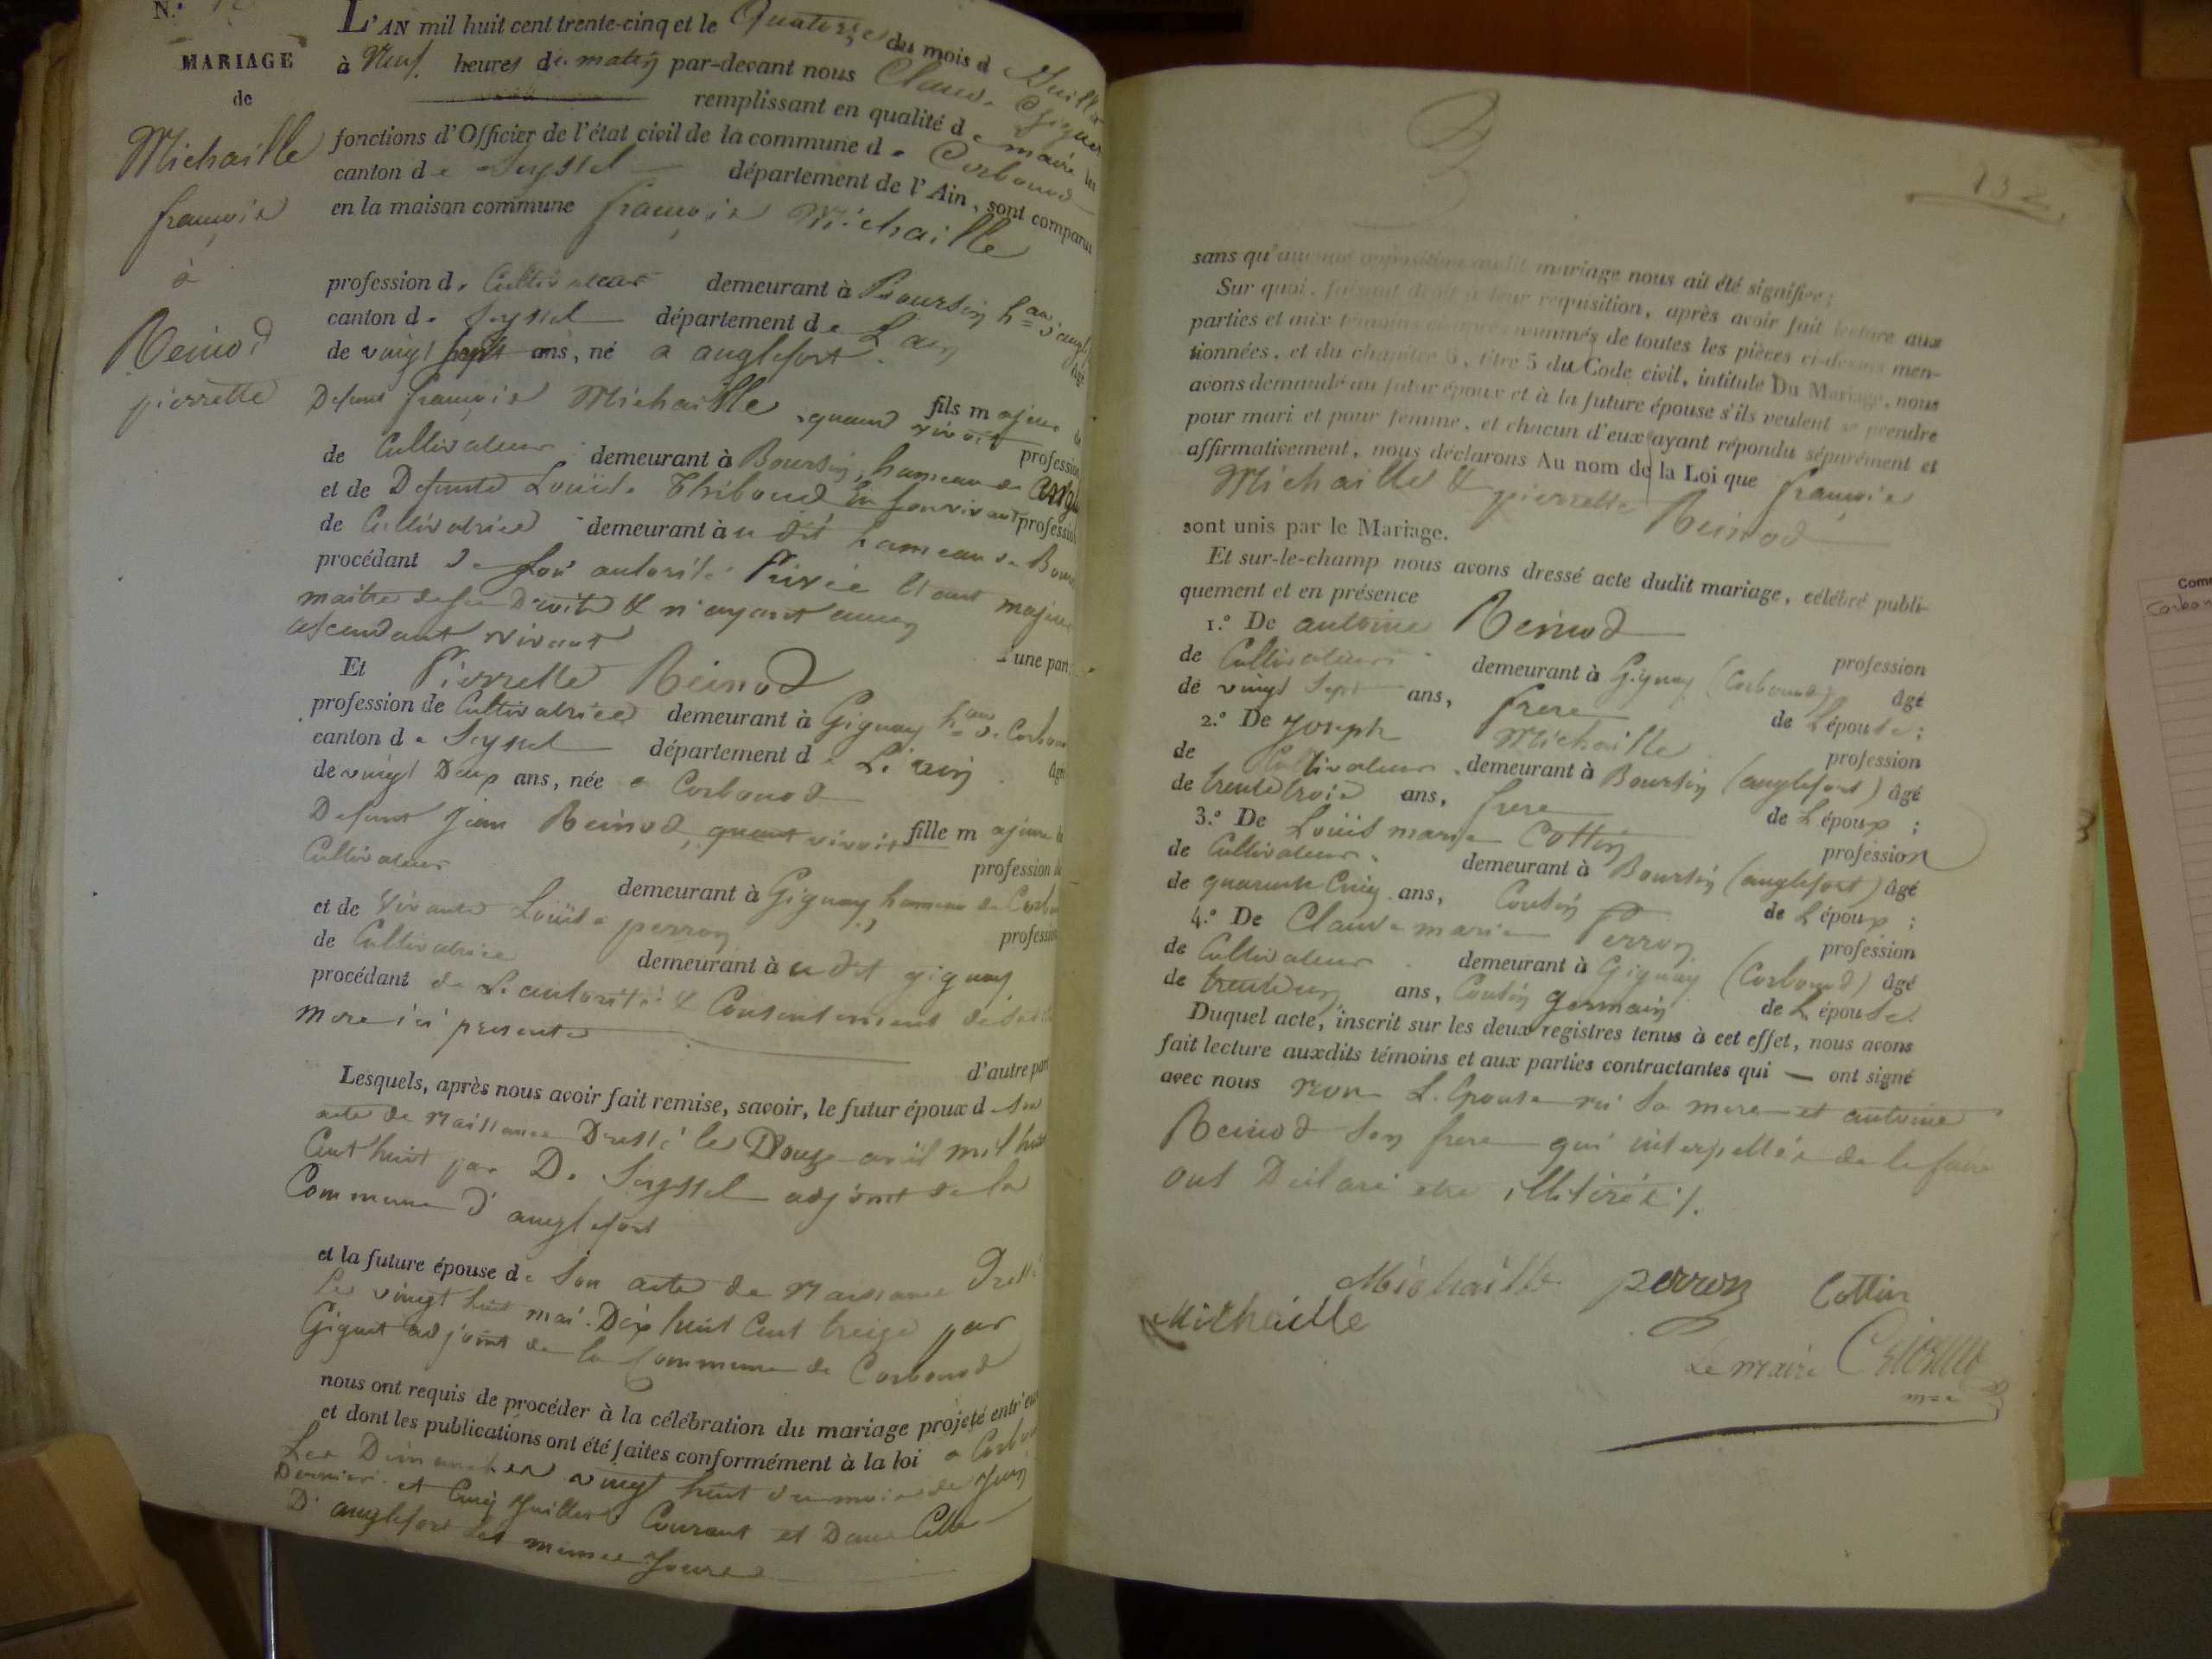 N.º
MARIAGE
de
Michaille
françois
à
Reinod
pierrette
L'AN mil huit cent trente-cinq et le Quatorze du mois d Juillet
à Neuf heures du matin par-devant nous Claude Giguet
remplissant en qualité de maire les
fonctions d'Officier de l'état civil de la commune de Corbonod
canton de Seyssel département de l'Ain, sont comparus
en la maison commune françois Michaille
profession de Cultivateur demeurant à Boursin h.au d'angl
canton de Seyssel département de L'ain âgé
de vingt sept ans, né a anglefort
fils majeur de
Defunt françois Michaille quand vivoit profession
de Cultivateur demeurant à Boursin, hameau de
et de Defunte Louïse Thiboud en son vivant profession
de Cultivatrice demeurant à u dit hameau de Bour
procédant de son autorité Privée Etant majeur
maitre de ses Droits & n'ayant aucun
ascendant vivant
d'une part.
Et Pierrette Reinod
profession de Cultivatrice demeurant à Gignay h.au de Corbon
canton de Seyssel département de L'ain âgé
de vingt Deux ans, née a Corbonod
fille majeure de
Defunt Jean Reinod, quant vivoit profession de
Cultivateur demeurant à Gignay, hameau de Corbon
et de Vivante Louïse perron profession
de Cultivatrice demeurant à u dit gignay
procédant de L'autorité & Consentement de sa
mere ici presente
d'autre part
Lesquels, après nous avoir fait remise, savoir, le futur époux de son
acte de Naissance Dressé le Douze avril mil huit
Cent huit par D. Seyssel adjoint de la
Commune d'anglefort
et la future épouse de Son acte de Naissance Dressé
le vingt huit mai Dix huit Cent treize par
Giguet adjoint de la Commune de Corbonod
nous ont requis de procéder à la célébration du mariage projeté entr'eux
et dont les publications ont été faites conformément à la loi a Corbo
Les Dimanches vingt huit du mois de Juin
Dernier et Cinq Juillet Courant et Dans Celle
D'anglefort les memes Jours
132
sans qu'aucune opposition audit mariage nous ait été signifiée;
Sur quoi, faisant droit à leur réquisition, après avoir fait lecture aux
parties et aux témoins ci-après nommés de toutes les pièces ci-dessus men-
tionnées, et du chapitre 6, titre 5 du Code civil, intitulé Du Mariage, nous
avons demandé au futur époux et à la future épouse s'ils veulent se prendre
pour mari et pour femme, et chacun d'eux ayant répondu séparément et
affirmativement, nous déclarons Au nom de la Loi que françois
Michaille & pierrette Reinod
sont unis par le Mariage.
Et sur-le-champ nous avons dressé acte dudit mariage, célébré publi-
quement et en présence
1.º De antoine Reinod profession
de Cultivateur demeurant à Gignay (Corbonod) âgé
de vingt Sept ans, frere de L'épouse;
2.º De Joseph Michaille profession
de Cultivateur demeurant à Boursin (anglefort) âgé
de trente trois ans, frere de L'époux;
3.º De Louïs marie Cottin profession
de Cultivateur demeurant à Boursin (anglefort) âgé
de quarante Cinq ans, Cousin de L'époux;
4.º De Claude marie Perron profession
de Cultivateur demeurant à Gignay (Corbonod) âgé
de trente un ans, Cousin germain de L'épouse
Duquel acte, inscrit sur les deux registres tenus à cet effet, nous avons
fait lecture auxdits témoins et aux parties contractantes qui — ont signé
avec nous non L'épouse ni Sa mere et antoine
Reinod Son frere qui interpellés de le faire
ont Déclaré etre illitirés /.
Michaille perron Cottin
Michaille
Le maire